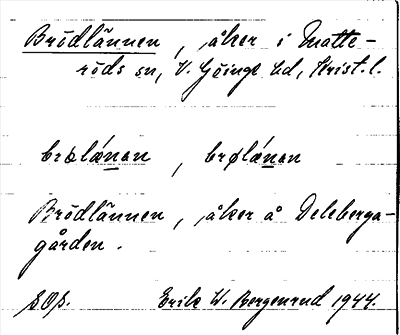 Brödlännen, åker i Matte-
röds sn, V. Göinge hd, Krist. l.
brølǽnən, brølǽnən
Brödlännen, åker å Deleberga-
gården.
Erik W. Bergenrud 1944.